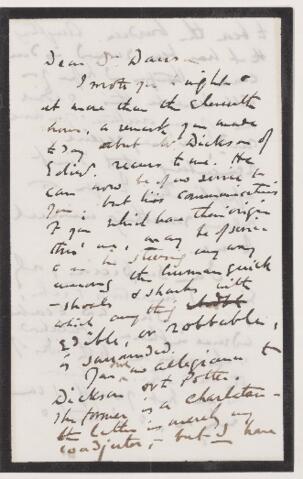 Dear Dr Dawson
I wrote you
at more than the Eleventh
hour, a remark you made
to day about Mr Dickson of
Edinr. recurs to me. He
can now be of no service to
you; but his communications
to you which have their origin
this me, may be of service
to me in steering my way
among the human quick
-shoals & sharks with
which anything
Edible, or robbable,
is surrounded.
I owe no allegiance to
Dickson or to Potter.
The former is a charlatan -
the latter is merely my
coadjutor, - but I have